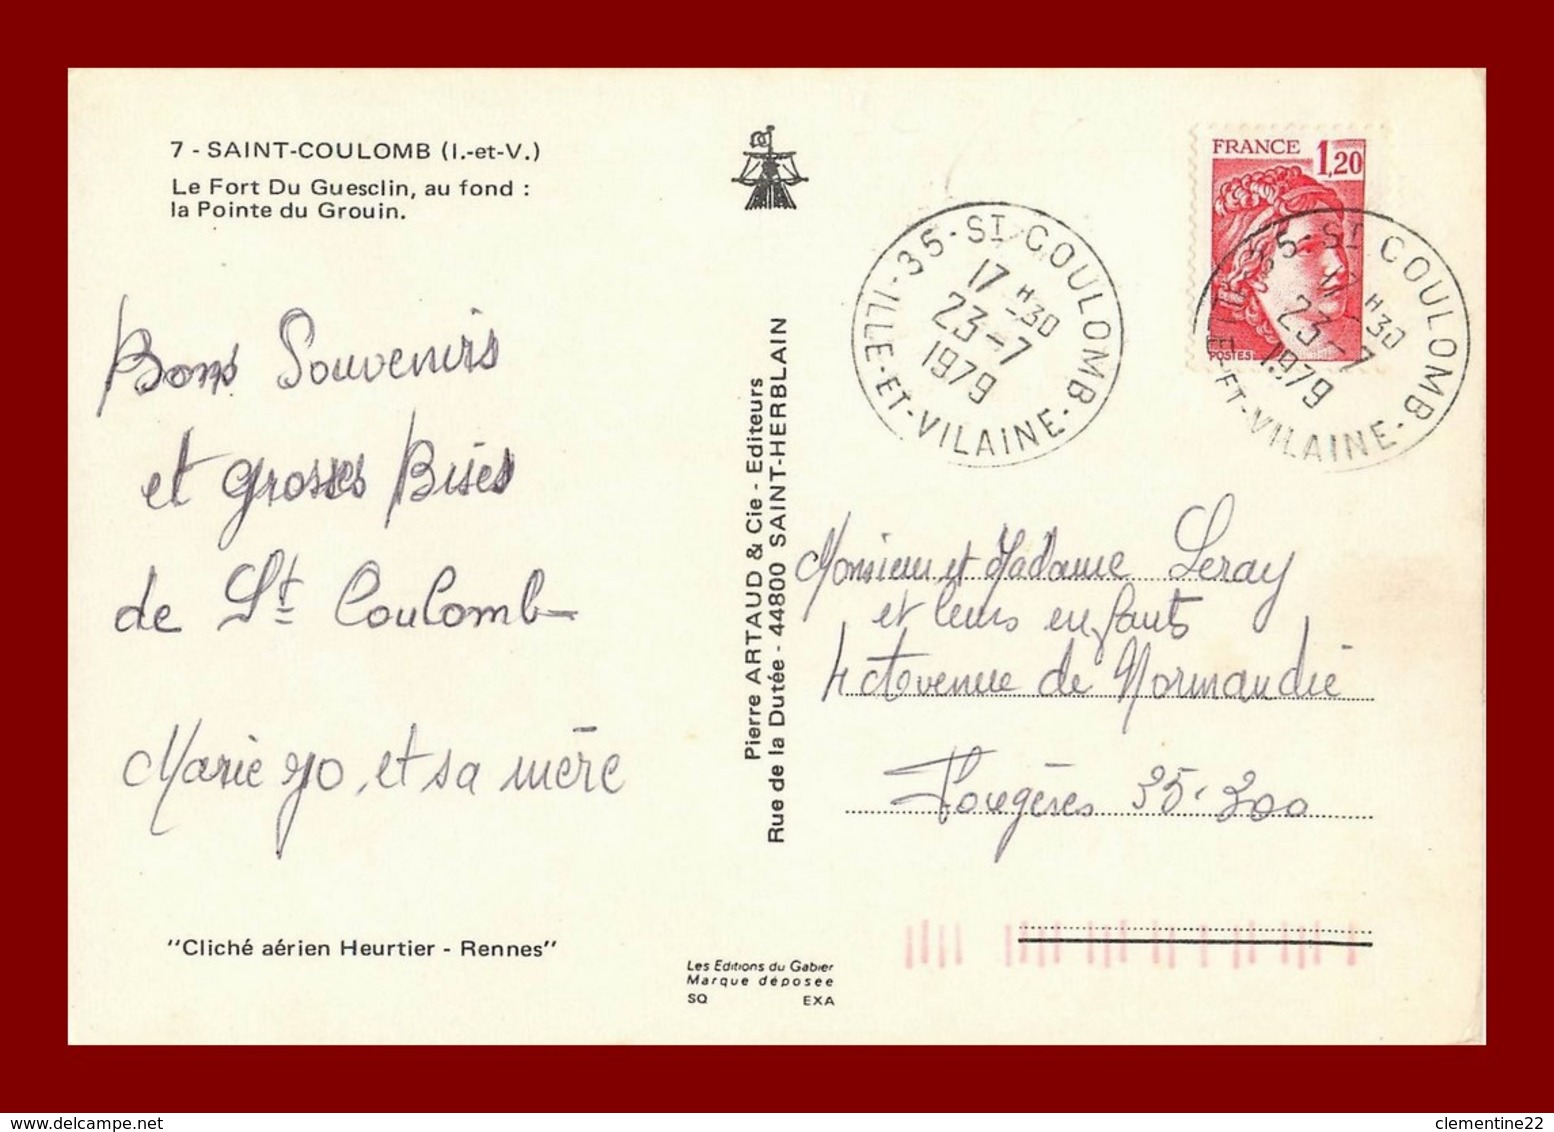 7 - SAINT-COULOMB (I.-et-V.)
Le Fort Du Guesclin, au fond :
la Pointe du Grouin.
Bons Souvenirs
et grosses Bises
de St Coulomb
Marie yo, et sa mère
"Cliché aérien Heurtier - Rennes"
Pierre ARTAUD & Cie - Editeurs
Rue de la Dutée - 44800 SAINT-HERBLAIN
Les Editions du Gabier
Marque déposée
SQ EXA
35 - ST COULOMB - ILLE-ET-VILAINE -
17 H 30
23-7
1979
FRANCE 1,20
POSTES
35 - ST COULOMB
ILLE-ET-VILAINE -
17 H 30
23-7
1979
Monsieur et Madame Leray
et leurs enfants
4 Avenue de Normandie
Fougères 35.300
clementine22